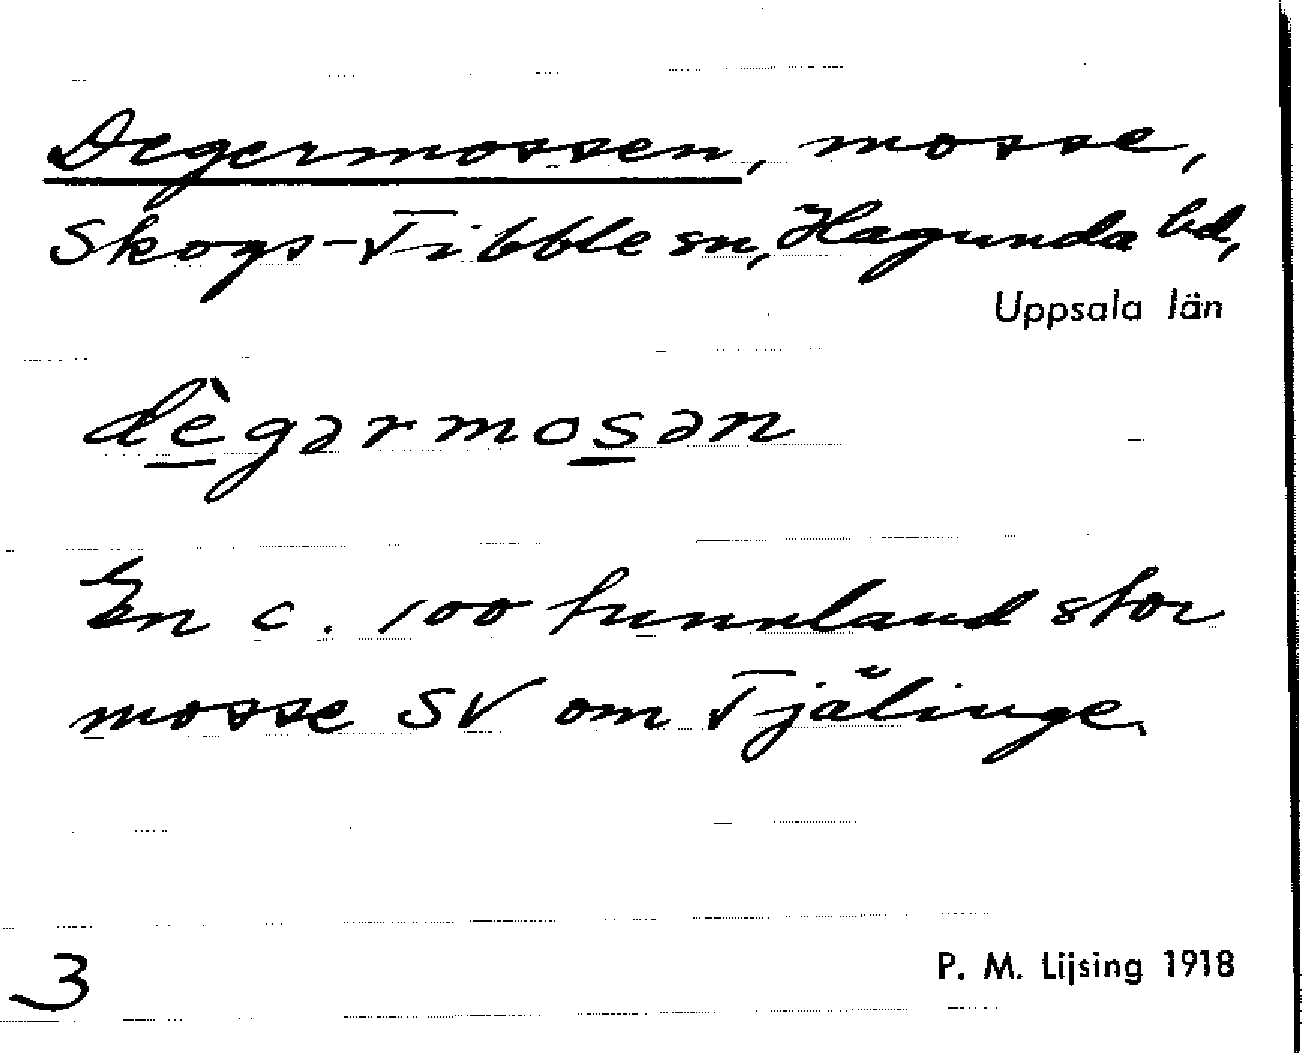 Degermossen, mosse,
Skogs-Tibble sn, Hagunda hd,
Uppsala län
dègərmosən
En c. 100 tunnland stor
mosse SV om Tjälinge.
3
P. M. Lijsing 1918